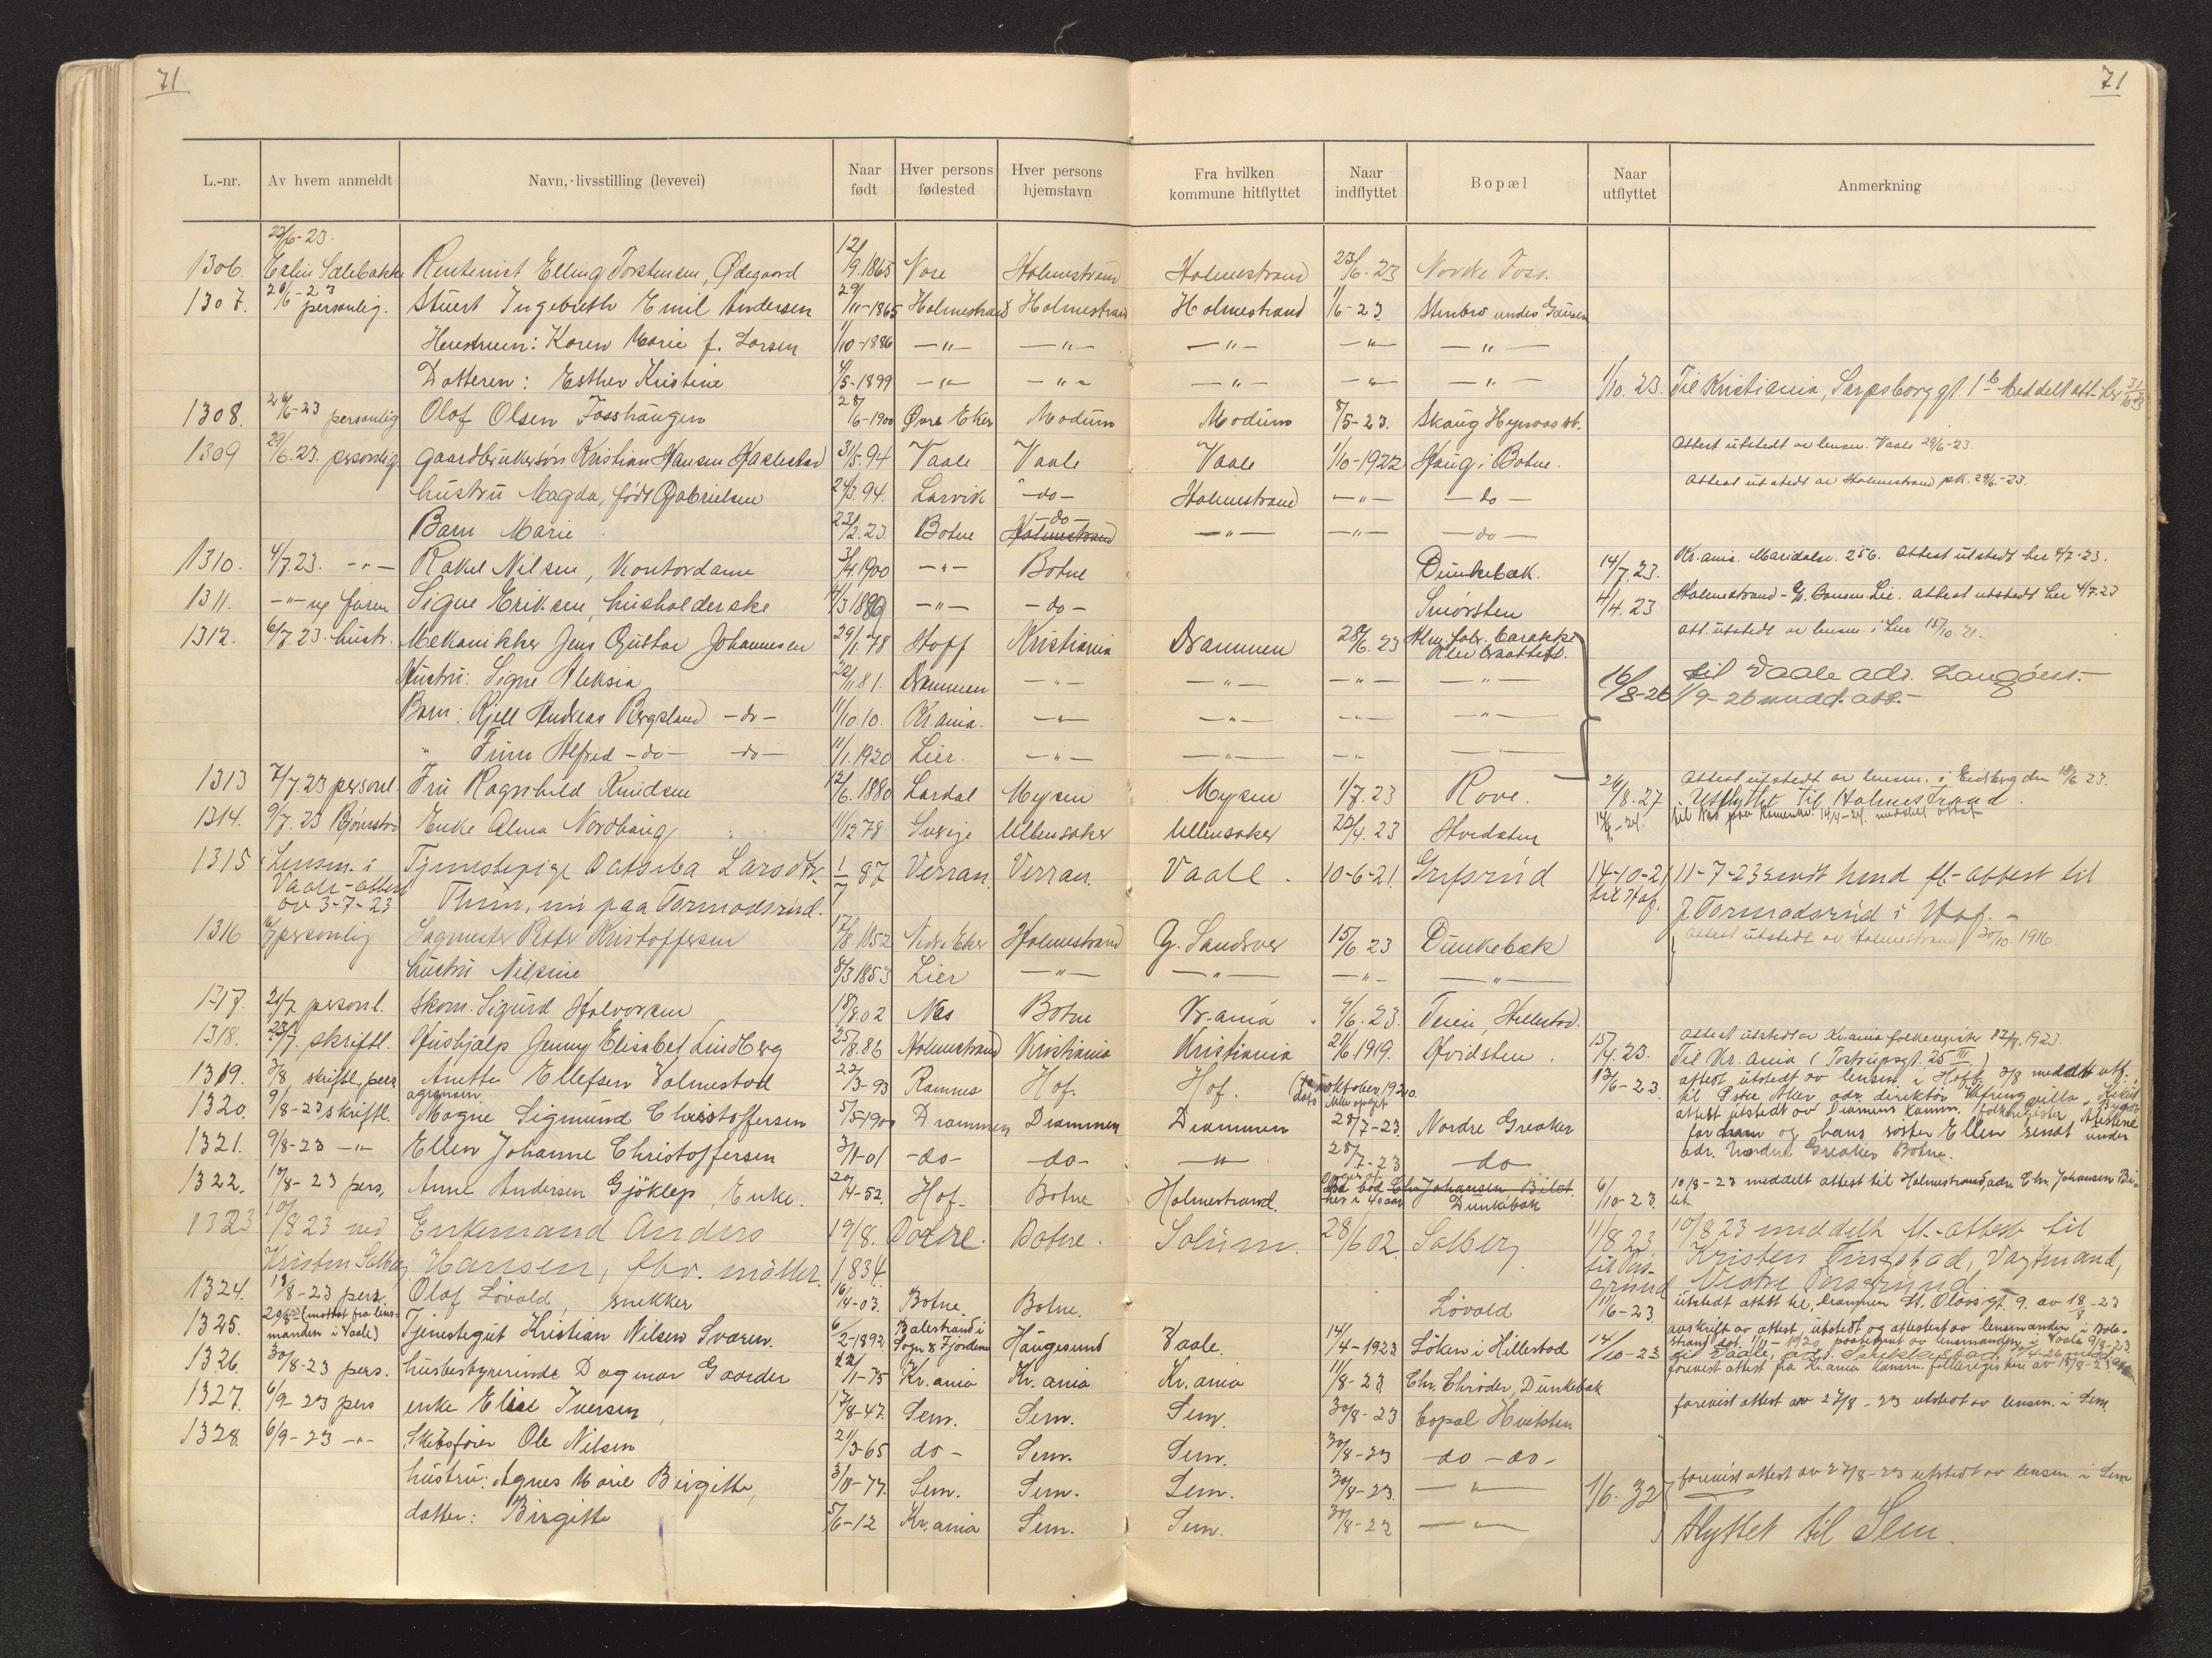 71
71
L.-nr. Av hvem anmeldt Navn, livsstilling (levevei) Naar født Hver persons fødested Hver persons hjemstavn Fra hvilken kommune hitflyttet Naar indflyttet Bopæl Naar utflyttet Anmerkning
23/6-23.
1306. Sælebakke Rentenist Elling Torstensen, Ødegaard 12/9.1865 Nore Holmestrand Holmestrand 23/6.23 Nordre Foss.
1307. 26/6-23 personlig. Stuert Ingebreth Emil Andersen 29/11-1865 Holmestrand Holmestrand Holmestrand 1/6-23 Stenbro under Gausen
Hustruen: Karen Marie f. Larsen 1/10-1886 —"— —"— —"— —"— —"—
Datteren: Esther Kristine 4/5-1899 —"— —"— —"— —"— —"— 1/10.23. Til Kristiania, Sarpsborggt. 1 b Meddelt att. her 31/10 23
1308. 28/6-23 personlig Olaf Olsen Fosshaugen 28/6-1900 Øvre Eker Modum Modum 8/5-23. Skaug
1309 29/6.23. personlig gaardbrukersøn Kristian Hansen Haslestad 31/5.94 Vaale Vaale Vaale 1/10-1922 Haug i Botne. Attest utstedt av lensm. Vaale 29/6-23.
hustru Magda, født Gabrielsen 24/3.94. Larvik -do- Holmestrand —"— —do— Attest utstedt av Holmestrand pk. 29/6-23.
Barn Marie 23/2.23. Botne Holmestrand -do- —"— —"— —do—
1310. 4/7.23. —"— Rakel Nilsen, Kontordame 3/4.1900 —"— Botne Dunkebæk. 14/7.23. Kr.ania. Maridalsv. 256. Attest utstedt her 4/7-23.
1311. —"— ny faren Signe Eriksen, husholderske 4/3 1889 —"— -do- Smørsten 4/4.23 Holmestrand - Lie. Attest utstedt her 4/7.23
1312. 6/7.23. hustr. Mekanikker Jens Gustav Johannesen 29/1.78 Hoff Kristiania Drammen 28/6.23 Att. utstedt av lensm. i Lier 15/10 21.
Hustru: Signe Aleksia 22/11 81. Drammen —"— —"— —"— —"— 16/8-26 til Vaale adr. Langøen.
Barn: Kjell Andreas Bergsland -do- 11/10.10. Kr.ania. —"— —"— —"— —"— 1/9-26 medd. att.
" Finn Alfred -do- -do- 11/1.1920 Lier. —"— —"— —"— —"—
1313 7/7.23 personl. Fru Ragnhild Knudsen 12/6.1880 Lardal Mysen Mysen 1/7.23 Rove. 26/8.27 Attest utstedt av lensm. i Eidsberg den 18/6 23.
Utflyttet til Holmestrand.
1314. 9/7.23 Bjørnstad Enke Alma Nordhaug 11/12 78 Sverige Ullensaker Ullensaker 22/4.23 Hvidsten 14/4-24. til Næs paa Romerike. 14/4-24. meddelt attest
1315 Lensm. i Tjenestepige Batseba Larsdtr. 1/7 87 Verran. Verran. Vaale. 10-6-21. Grefsrud 14-10-21 11-7-23 sendt hend fl-attest til
Vaale-attest av 3-7-23 Thun, nu paa Tormodsrud. til Hof. Tormodsrud i Hof.
1316 personlig Sagmester Peter Kristoffersen 17/8.1852 Nedre Eker Holmestrand G. Sandsver 15/6.23 Dunkebæk Attest utstedt av Holmestrand 30/10.1916
hustru Nilsine 8/3 1853 Lier —"— —"— —"— —"—
1317. 20/7 personl. Skom. Sigurd Halvorsen 18/8.02 Næs Botne Kr.ania 9/6.23. Teien, Hillestad.
1318. 23/7. skriftl. Hushjælp Jenny Elisabet Lindberg 25/8.86 Holmestrand Kristiania Kristiania 21/6.1919. Hvidsten. 15/4.23. Attest utstedt av Kr.ania folkeregister 12/7.1923.
Til Kr.ania (Tostrupsgt. 25 III)
1319. 3/8 skriftl. pers Anette Ellefsen Valmestad 22/3-93 Ramnes Hof. Hof. oktober 1920. 13/6-23. attest utstedt av lensm. i Hoff 3/8 meddelt utfl.
til Østre Aker adr. direktør villa
1320. 9/8-23 skriftl. agronom Magne Sigmund Christoffersen 5/5-1900 Drammen Drammen Drammen 28/7-23. Nordre Greaker attest utstedt av Drammens komm. folkeregister Attestene
1321. 9/8-23 —"— Ellen Johanne Christoffersen 3/1-01 -do- -do- —"— 28/7-23 do for ham og hans søster Ellen sendt under
adr. Nordre Greaker Botne.
1322. 10/8-23 pers, Anne Andersen Gjøklep, Enke. 20/4-52. Hof. Botne Holmestrand. her i 40 aar Chr Johansen Bilet. Dunkebæk 6/10-23. 10/8-23 meddelt attest til Holmestrand, adr. Chr. Johansen Bilet.
1323 10/8 23 ved Enkemand Anders 19/8. Botne. Botne. Solum. 28/6 02. Solberg 11/8 23 10/8 23 meddelt fl-attest til
Kristen Solberg Hansen, fhv. møller. 1834. til Porsgrund Kristen Tingstad, Vagtmand,
Vestre Porsgrund.
1324. 18/8-23 pers. Olaf Løvald, snekker 16/4-03. Botne. Botne. Løvald 11/6-23. utstedt attest til, Drammen St. Olavsgt. 9. av 18/8-23
1325. 20/8 (mottat fra lensmanden i Vaale) Tjenestegut Kristian Nilsen Svaren. 6/2-1892 Balestrand i Sogn & Fjordene Haugesund Vaale. 14/4-1923 Løken i Hillestad 14/10-23 avskrift av attest utstedt og attestert av lensmanden i Balestrand
1326. 30/8-23 pers. husbestyrerinde Dagmar Gaarder 22/1-75 Kr.ania Kr.ania Kr.ania 11/8-23. Chr. Chrøder, Dunkebæk forevist attest fra Kr.ania komm. folkeregister av 18/8-23
1327. 6/9-23 pers enke Elise Iversen, 17/8-47. Sem. Sem. Sem. 30/8-23 bopæl Hvitsten forevist attest av 27/8-23 utstedt av lensm. i Sem.
1328. 6/9-23 —"— Skibsfører Ole Nilsen 21/3-65 do- Sem. Sem. 30/8-23 do-do-
hustru: Agnes Marie Birgitte, 3/10-77. Sem. Sem. Sem. 30/8-23. —"— 1/6.32 forevist attest av 27/8-23 utstedt av lensm. i Sem
datter: Birgitte 5/6-12 Kr.ania Sem. Sem. 30/8-23 —"— flyttet til Sem.